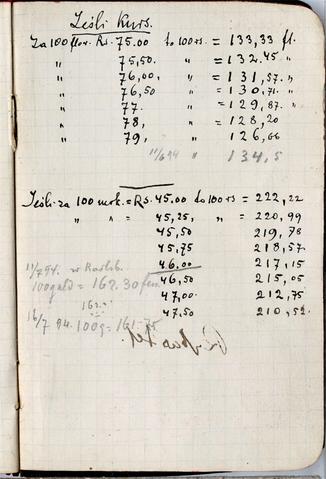 Jeśli Kurs.
Za 100 flor. Rs. 75.00 to 100 rs. = 133,33 fl.
" 75,50. " = 132.45 "
" 76,00, " = 131,57. "
" 76,50 " = 130,71. "
" 77. " = 129,87. "
" 78, " = 128,20
" 79, " 126,66
11/6 94 " 134,5
Jeśli za 100 mrk. = Rs. 45.00 to 100 rs = 222,22
" " = 45,25, " = 220,99
45,50 219,78
45,75 218,57
46.00 217,15
11/7 94. w Karlsb.
46,50 215,05
100 guld = 162.30 fen
47,00 212,75
162.
47,50 210,52
16/7 94. 100 g = 161.75